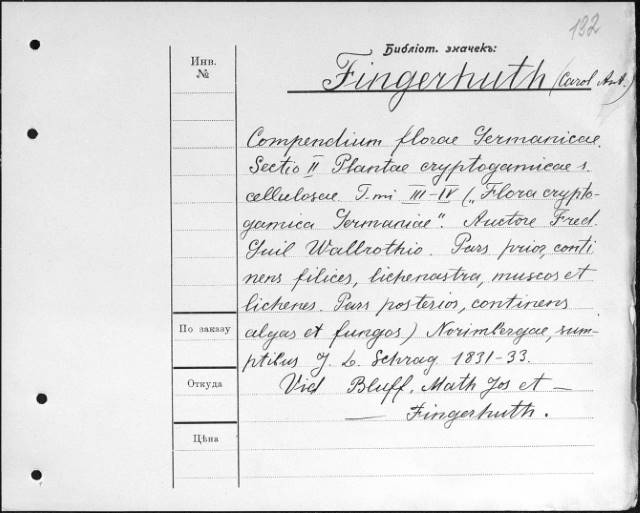 132
Библіот. значекъ:
Инв.
№
Fingerhuth (Carol Ant.)
Compendium florae Germanicae.
Sectio II Plantae cryptogamicae s.
cellulosae. T-mi III-IV („Flora crypto-
gamica Germaniae“. Auctore Fred.
Guil Wallrothio. Pars prior, conti
nens filices, lichenastra, muscos et
lichenes. Pars posterior, continens
algas et fungos) Norimbergae, sum-
ptibus J. L. Schrag 1831-33.
Vid Bluff, Math Jos et —
— Fingerhuth.
По заказу
Откуда
Цѣна